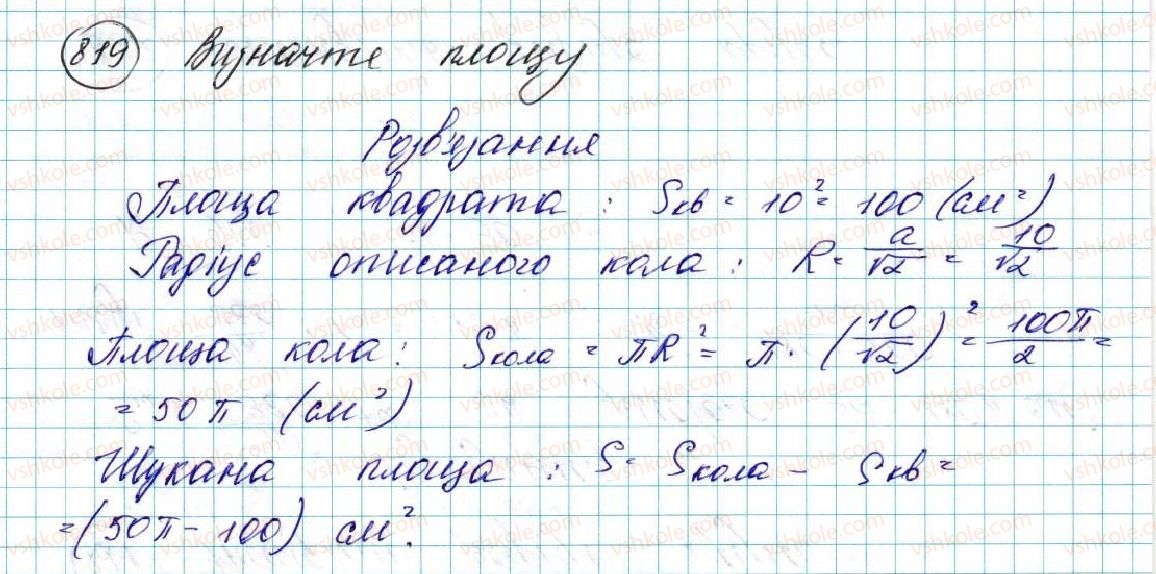 819 Визначте площу
Розв'язання
Площа квадрата : Sкв = 10² = 100 (см²)
Радіус описаного кола : R = a/√2 = 10/√2
Площа кола : Sкола = πR² = π · (10/√2)² = 100π/2 =
= 50π (см²)
Шукана площа : S = Sкола − Sкв =
= (50π − 100) см².
vshkole.com